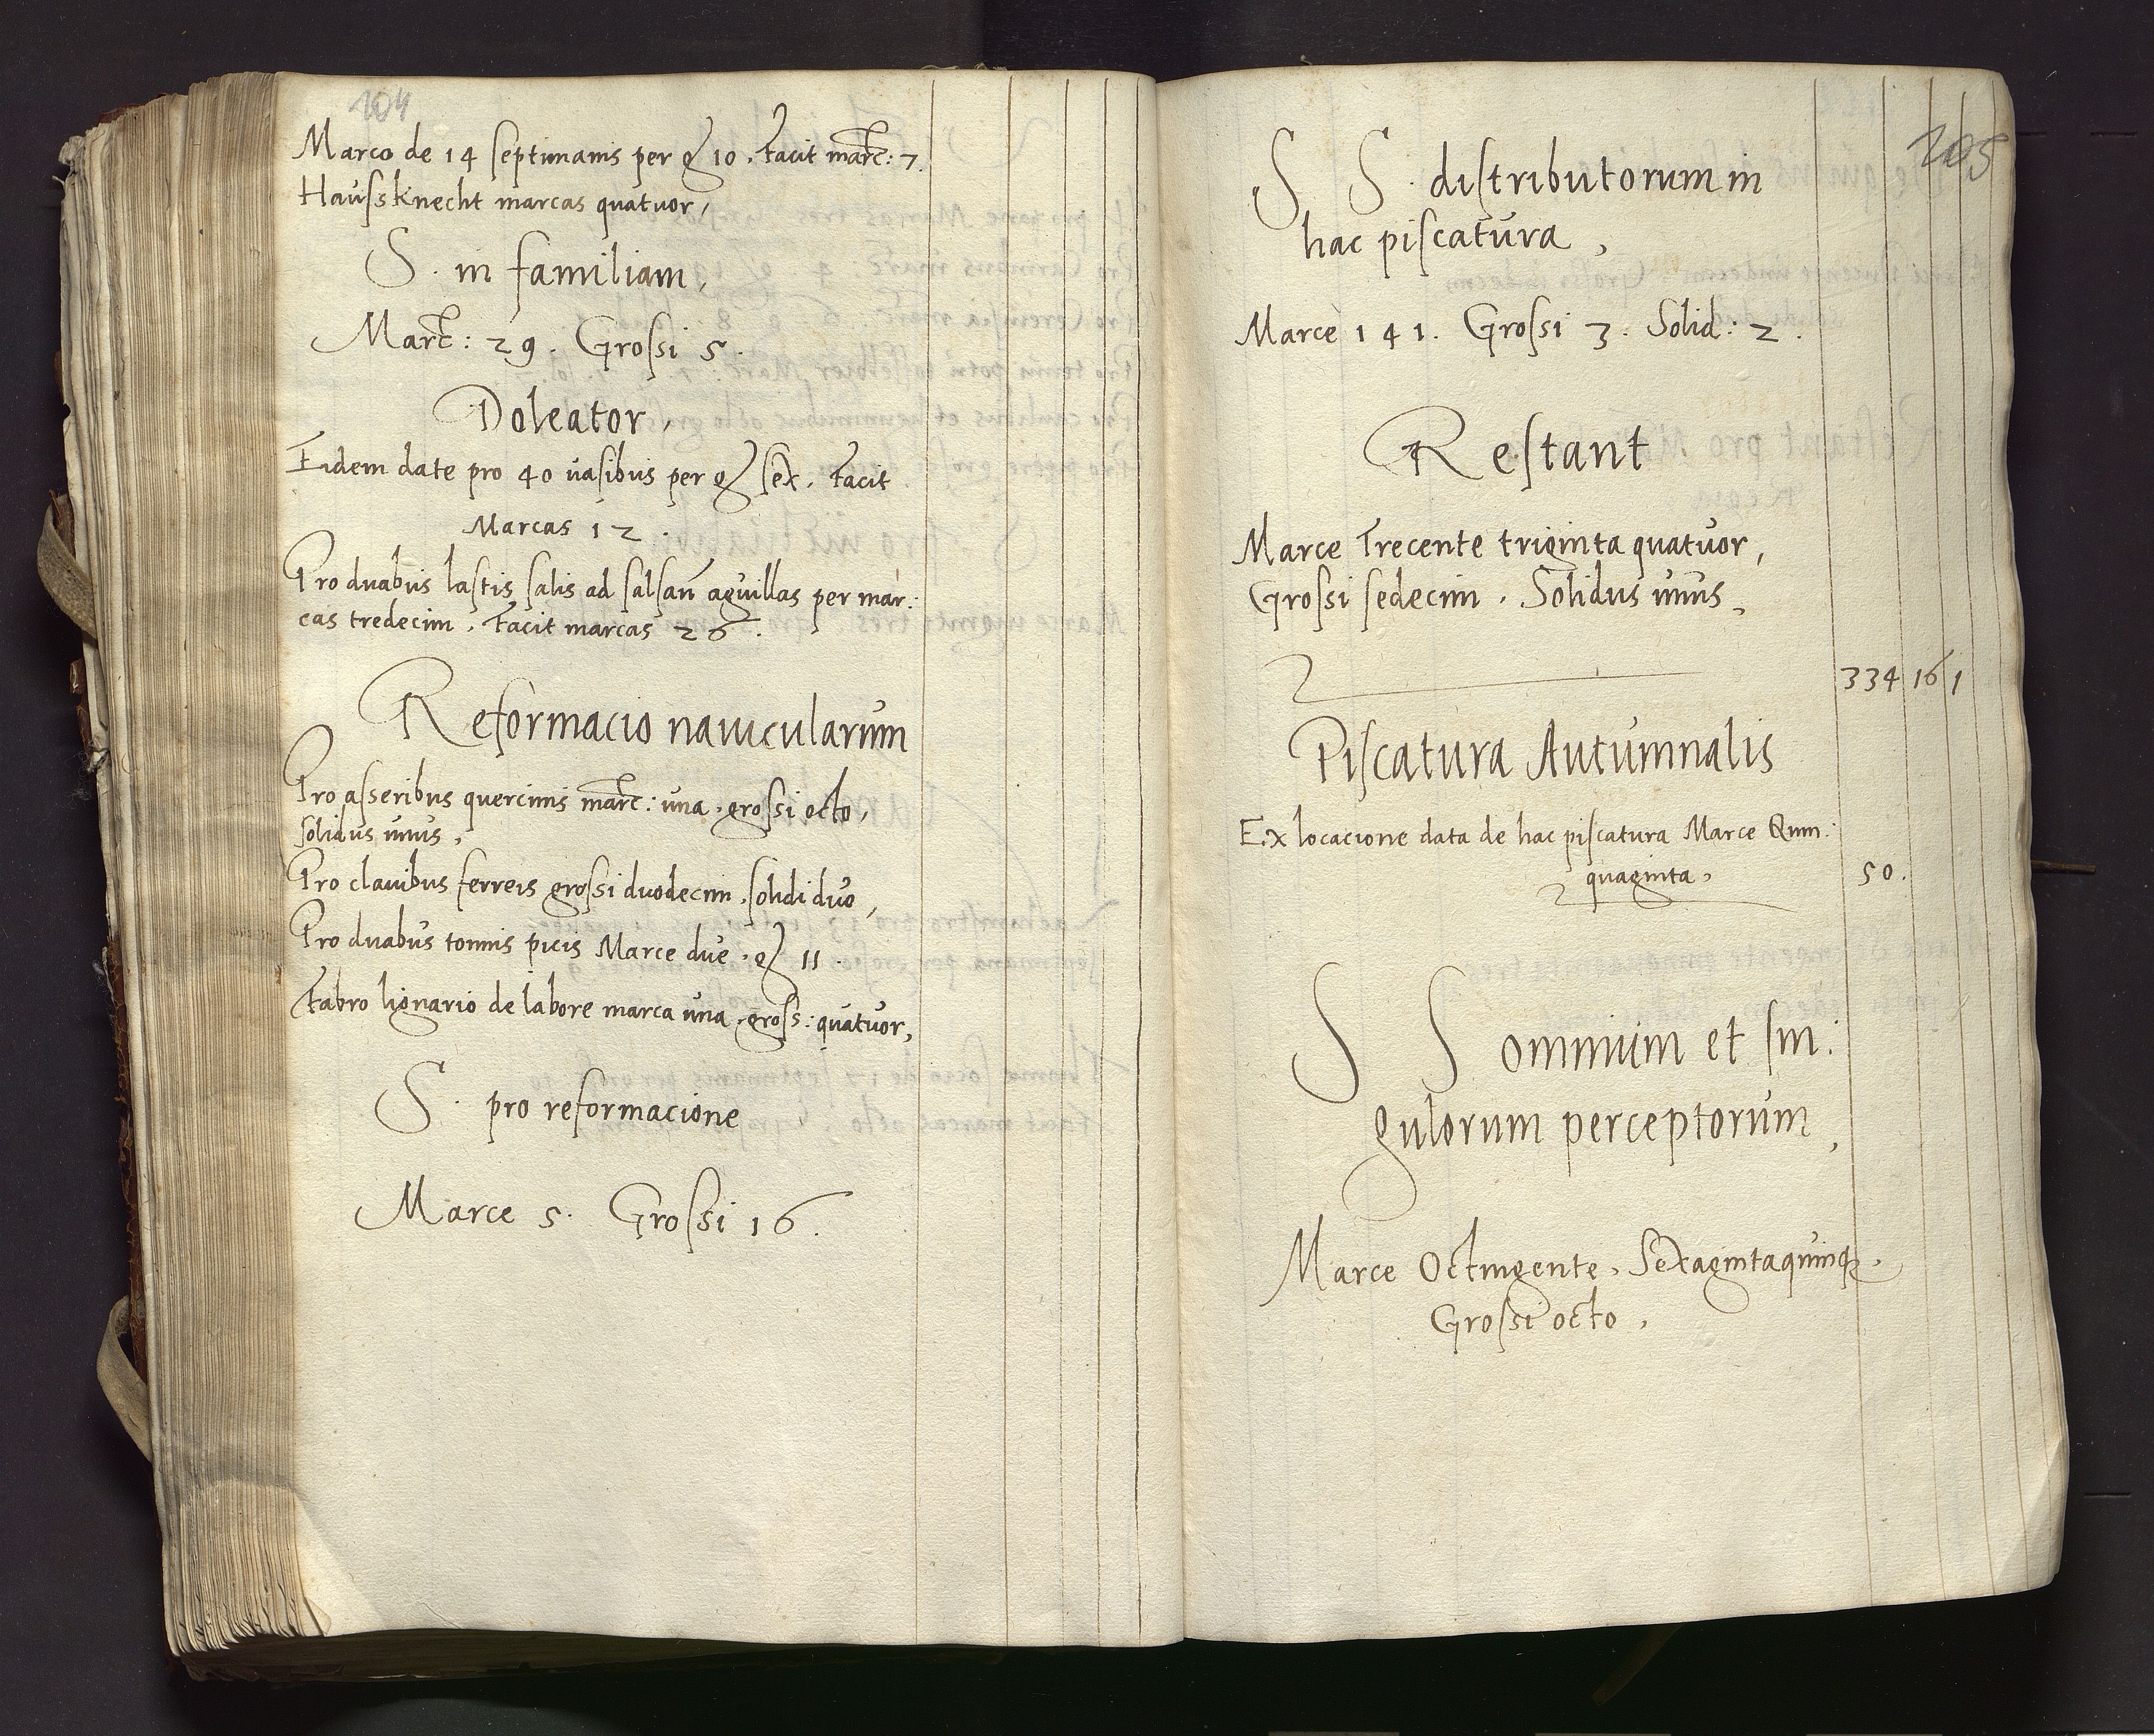 104
Marco de 14 septimanis per gr 10. facit marc: 7.
Haussknecht marcas quatuor,
S. in familiam,
Marc: 29. Grossi 5.
Doleator,
Eidem date pro 40 vasibus per gr sex. facit
Marcas 12.
Pro duabus lastis salis ad salsan aguillas per mar:
cas tredecim. facit marcas 26.
Reformacio navicularum
Pro asseribus quercinis marc: una. grossi octo,
solidus unus,
Pro clavibus ferreis grossi duodecim. solidi duo,
Pro duabus tonnis picis Marce due. gr 11.
Fabro lignario de labore marca una. gross: quatuor,
S. pro reformacione
Marce 5. Grossi 16.
205
S S. distributorum in
hac piscatura,
Marce 141. Grossi 3. Solid: 2.
Restant
Marce Trecente triginta quatuor,
Grossi sedecim. Solidus unus,
334 16 1
Piscatura Autumnalis
Ex locacione data de hac piscatura Marce Quin:
quaginta, 50.
S S omnium et sin:
gulorum perceptorum,
Marce Octingente, Sexagintaquinq.
Grossi octo,